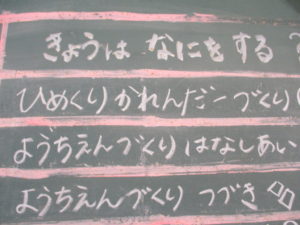 きょうは なにをする?
ひめくりかれんだーづくり(
ようちえんづくり はなしあい
ようちえんづくり つづき